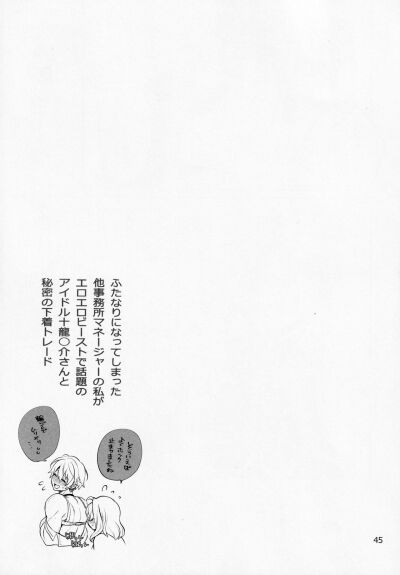 ふたなりになってしまった
他事務所マネージャーの私が
エロエロビーストで話題の
アイドル十龍〇介さんと
秘密の下着トレード
45